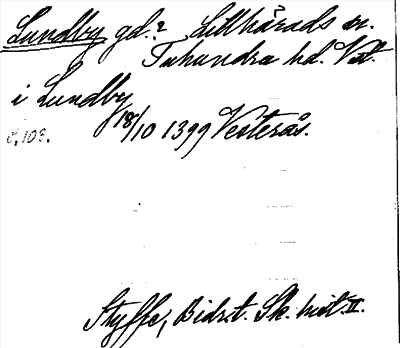 Lundby gd.? Lillhärads sn.
Tuhundra hd. Vstl.
i Lundby
18/10 1399 Vesterås.
S. 103.
Styffe, Bidr. t. Sk. hist. II.